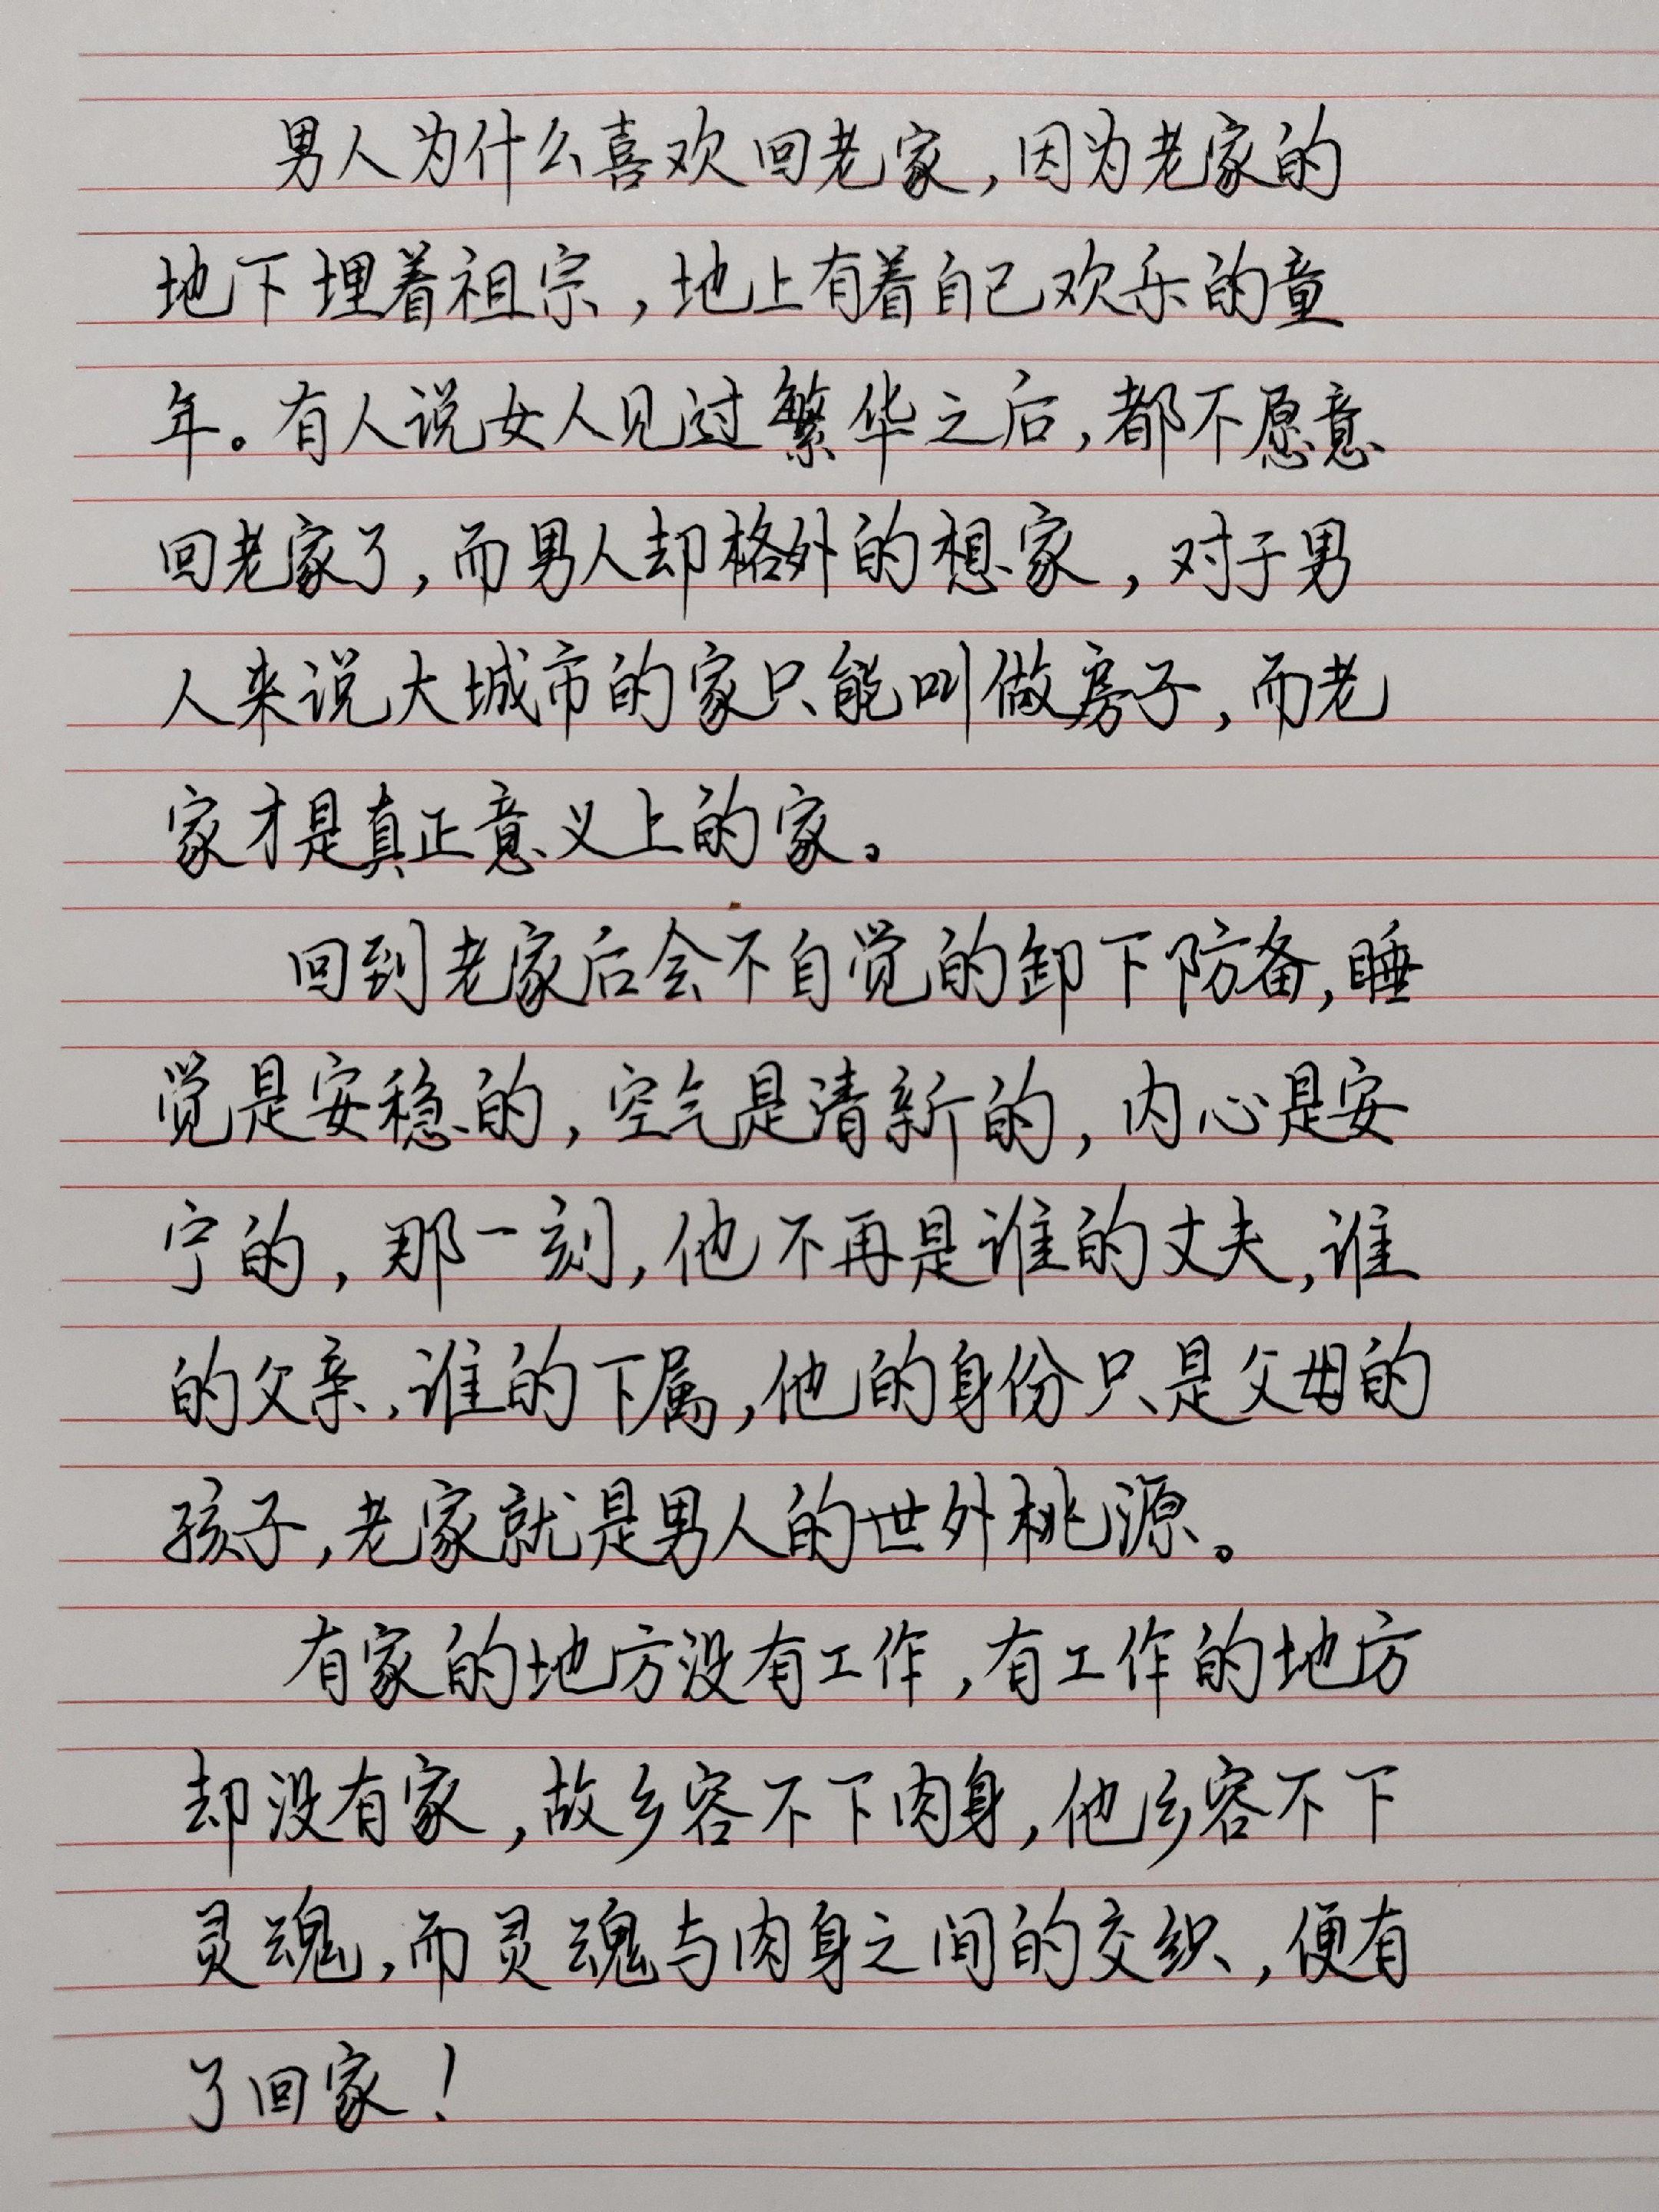 男人为什么喜欢回老家,因为老家的
地下埋着祖宗,地上有着自己欢乐的童
年。有人说女人见过繁华之后,都不愿意
回老家了,而男人却格外的想家,对于男
人来说大城市的家只能叫做房子,而老
家才是真正意义上的家。
回到老家后会不自觉的卸下防备,睡
觉是安稳的,空气是清新的,内心是安
宁的,那一刻,他不再是谁的丈夫,谁
的父亲,谁的下属,他的身份只是父母的
孩子,老家就是男人的世外桃源。
有家的地方没有工作,有工作的地方
却没有家,故乡容不下肉身,他乡容不下
灵魂,而灵魂与肉身之间的交织,便有
了回家!